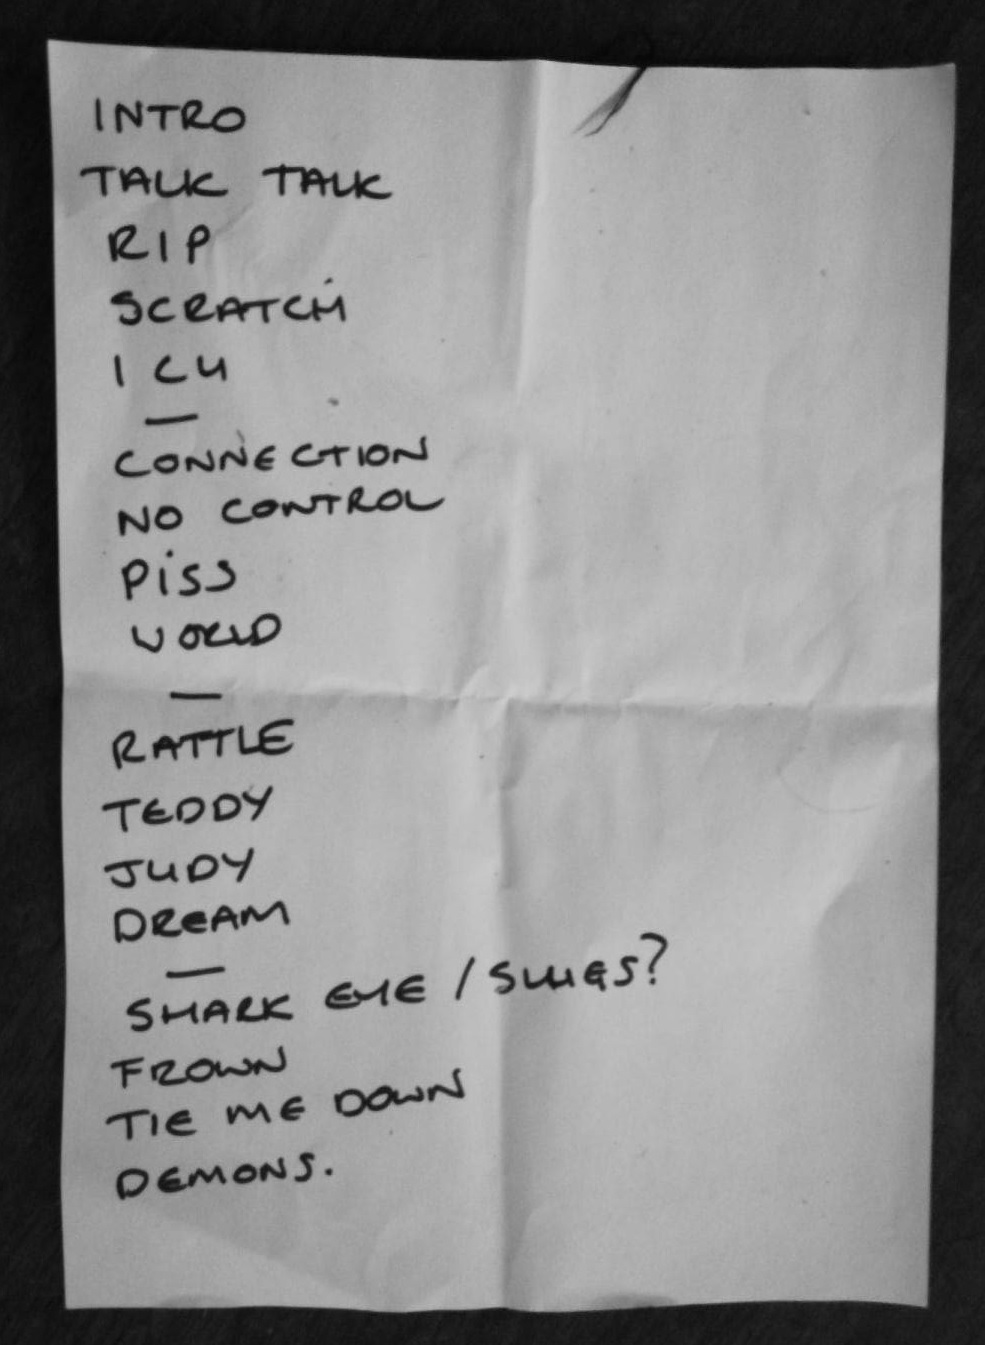 INTRO
TALK TALK
RIP
SCRATCH
I C U
—
CONNECTION
NO CONTROL
PiSS
WORLD
—
RATTLE
TEDDY
JUDY
DREAM
—
SHARK EYE / ?
FROWN
TIE ME DOWN
DEMONS.